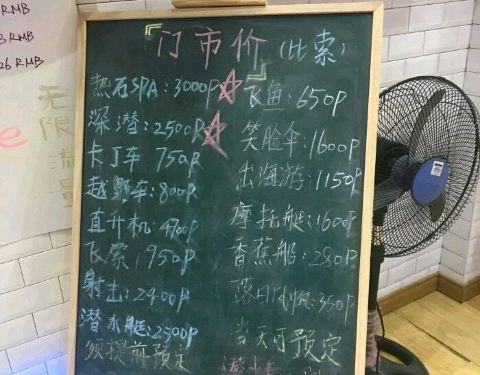 RMB
RMB
26 RMB
无
限
流
量
e
『门市价』(比索)
热石SPA:3000P☆
深潜:2500P☆
卡丁车 750P
越野车:800P
直升机:4700P
飞索:1950P
射击:2400P
潜水艇:2500P
须提前预定
飞鱼:650P
笑脸伞:1600P
出海游:1150P
摩托艇:1600P
香蕉船:280P
落日帆船:350P
当天可预定